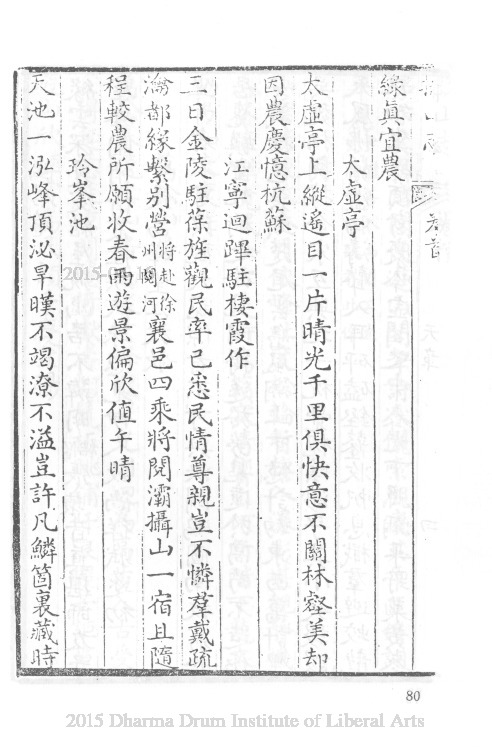 緣眞宜農
太虛亭
太虛亭上縱遙目一片晴光千里俱快意不關林壑美却
因農慶憶杭蘇
江寧迴蹕駐棲霞作
三日金陵駐葆旌觀民率已悉民情尊親豈不憐羣戴疏
瀹都緣繫别營將赴徐州閱河襄邑四乘將閱灞攝山一宿且隨
程較農所願收春雨遊景偏欣值午晴
玲峯池
天池一泓峰頂泌旱暵不竭潦不溢豈許凡鱗箇裏藏時
80
2015 Dharma Drum Institute of Liberal Arts